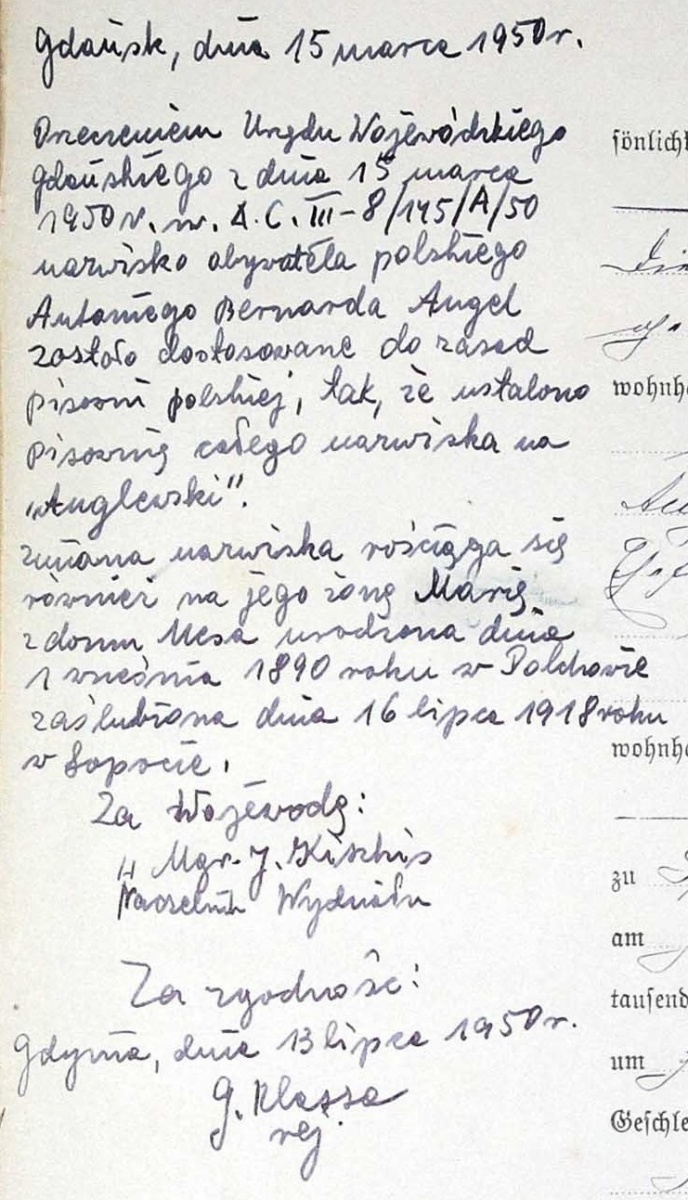 Gdańsk, dnia 15 marca 1950 r.
Orzeczeniem Urzędu Wojewódzkiego
Gdańskiego z dnia 15 marca
1950 r. nr. A.C. III-8/145/A/50
nazwisko obywatela polskiego
Antoniego Bernarda Angel
zostało dostosowane do zasad
pisowni polskiej, tak, że ustalono
pisownię całego nazwiska na
„Anglewski".
Zmiana nazwiska rościąga się
również na jego żonę Marię
z domu Mesa urodzona dnia
1 września 1890 roku w Połchowie
zaślubiona dnia 16 lipca 1918 roku
w Sopocie.
Za Wojewodę:
„ Mgr. J.
Naczelnik Wydziału
Za zgodność:
Gdynia, dnia 13 lipca 1950 r.
G. Klassa
rej.
sönlich
wohnh
wohnh
zu
am
tausend
um
Geschle